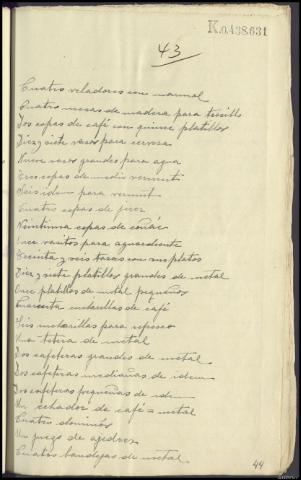 K.0.438.631
43
Cuatro veladores con marmol
Cuatro mesas de madera para tresillo
Dos copas de café con quince platillos
Diez y siete vasos para cerveza
Nueve vasos grandes para agua
Tres copas de medio vermut
Seis idem para vermut
Cuatro copas de jerez
Veintiuna copas de coñac
Once vasitos para aguardiente
Treinta y seis tazas con sus platos
Diez y siete platillos grandes de metal
Once platillos de metal pequeños
Cuarenta cucharillas de café
Seis cucharillas para refresco
Una tetera de metal
Dos cafeteras grandes de metal
Dos cafeteras medianas de idem
Dos cafeteras pequeñas de idem
Un echador de café = metal
Cuatro dominós
Un juego de ajedrez
Cuatro bandejas de metal
44